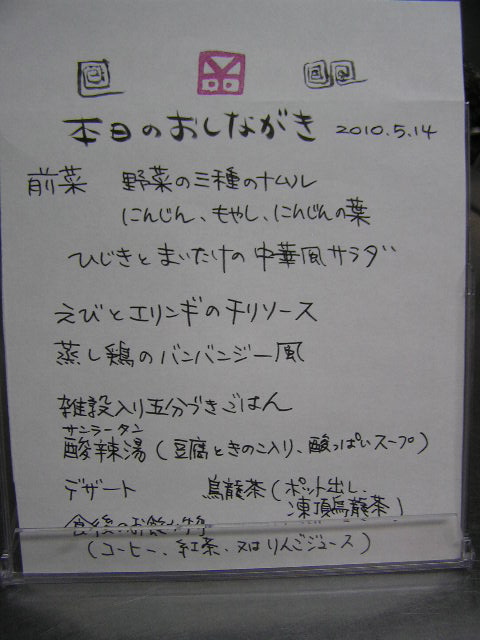 本日のおしながき 2010.5.14
前菜 野菜の三種のナムル
にんじん、もやし、にんじんの葉
ひじきとまいたけの中華風サラダ
えびとエリンギのチリソース
蒸し鶏のバンバンジー風
雑穀入り五分づきごはん
サンラータン
酸辣湯(豆腐ときのこ入り、酸っぱいスープ)
デザート 烏龍茶(ポット出し、
凍頂烏龍茶)
食後のお飲み物
(コーヒー、紅茶、又はりんごジュース)